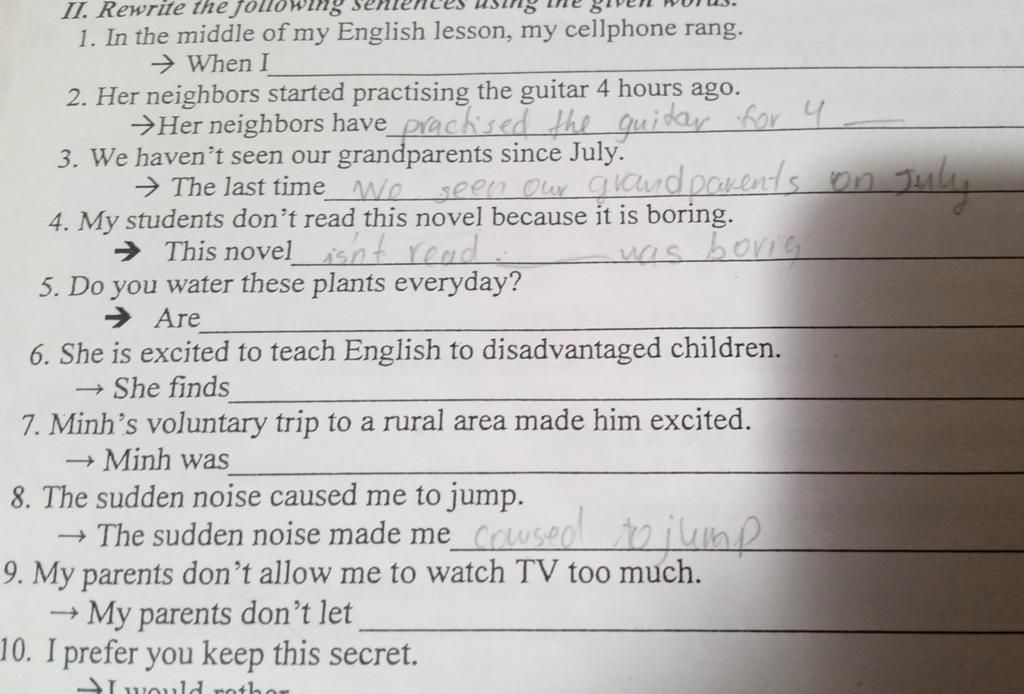 II. Rewrite the following sentences using the given words.
1. In the middle of my English lesson, my cellphone rang.
→ When I
2. Her neighbors started practising the guitar 4 hours ago.
→Her neighbors have practised the guitar for 4
3. We haven't seen our grandparents since July.
→ The last time We seen our grandparents on July
4. My students don't read this novel because it is boring.
→ This novel isn't read. was borig
5. Do you water these plants everyday?
→ Are
6. She is excited to teach English to disadvantaged children.
→ She finds
7. Minh's voluntary trip to a rural area made him excited.
→ Minh was
8. The sudden noise caused me to jump.
→ The sudden noise made me coused to jump
9. My parents don't allow me to watch TV too much.
→ My parents don't let
10. I prefer you keep this secret.
→I would rather